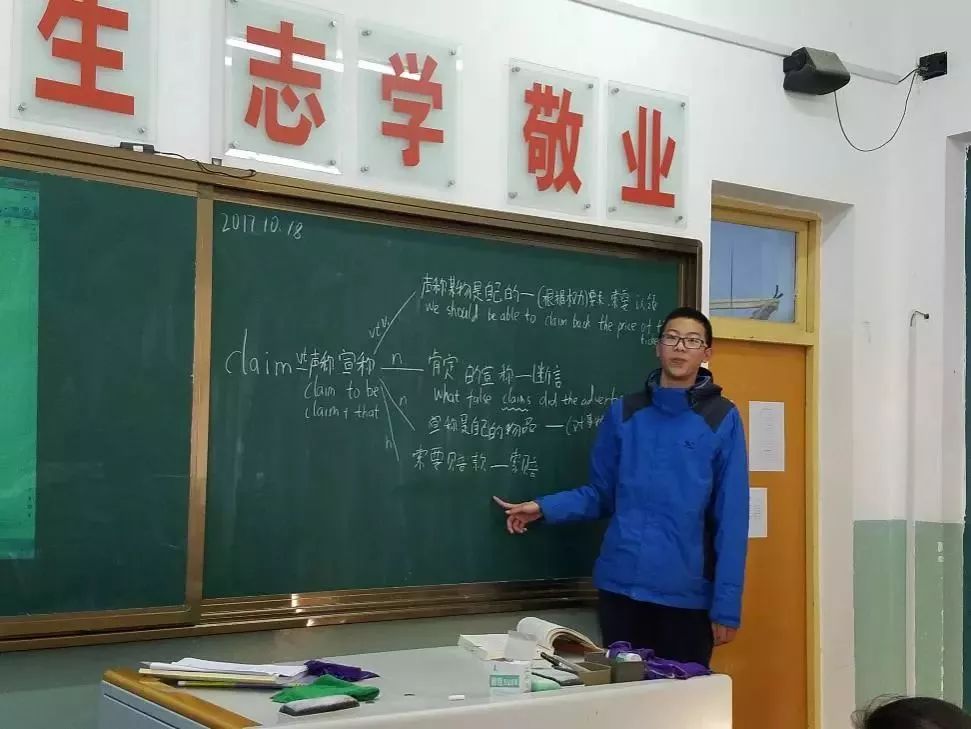 生志学敬业
2017.10.18
声称某物是自己的—(根据权力)要求,索要 认领
we should be able to claim back the price of t
vt&vi
claim vt 声称 宣称 n 肯定的宣称—断言
claim to be
What false claims did the advert
claim + that
n
宣称是自己的物品—(对事物
n
索要赔款—索赔